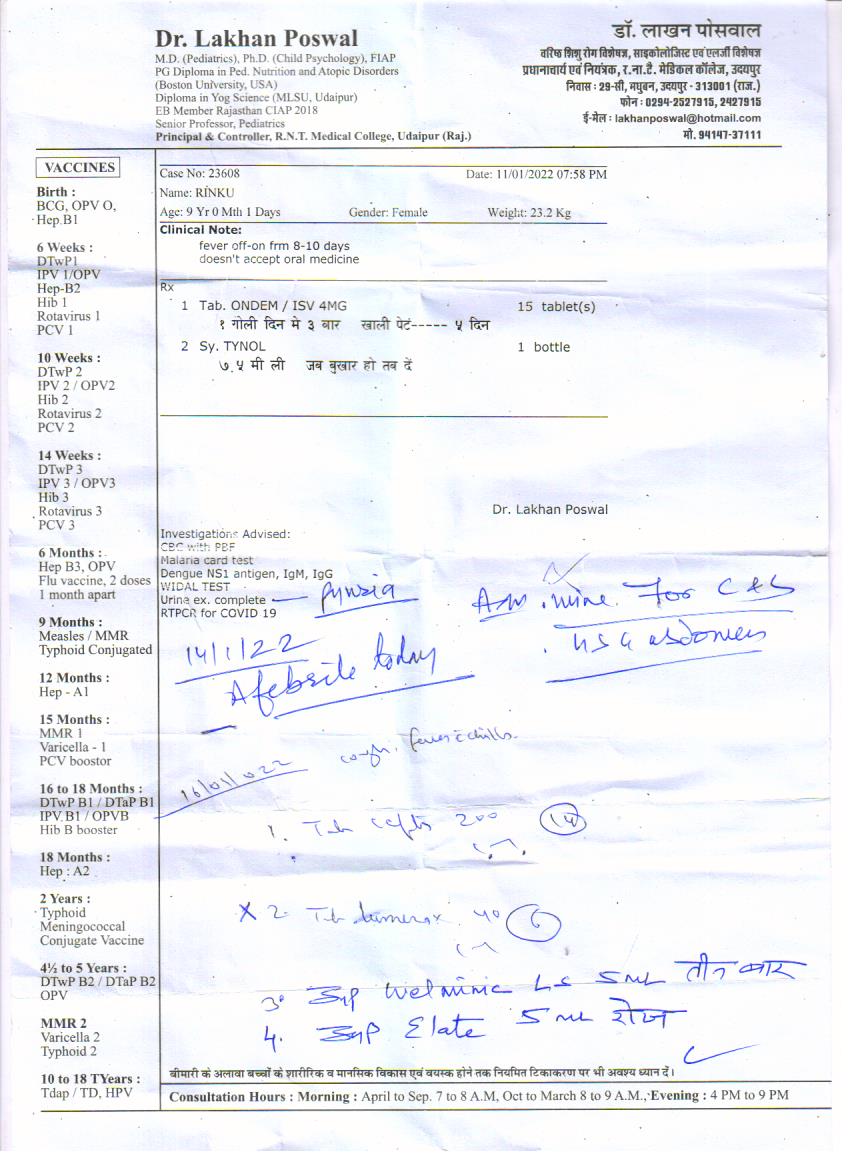 Dr. Lakhan Poswal
M.D. (Pediatrics), Ph.D. (Child Psychology), FIAP
PG Diploma in Ped. Nutrition and Atopic Disorders
(Boston University, USA)
Diploma in Yog Science (MLSU, Udaipur)
EB Member Rajasthan CIAP 2018
Senior Professor, Pediatrics
Principal & Controller, R.N.T. Medical College, Udaipur (Raj.)
डॉ. लाखन पोसवाल
वरिष्ठ शिशु रोग विशेषज्ञ, साइकोलोजिस्ट एवं एलर्जी विशेषज्ञ
प्रधानाचार्य एवं नियंत्रक, र.ना.टै. मेडिकल कॉलेज, उदयपुर
निवास : 29-सी, मधुबन, उदयपुर - 313001 (राज.)
फोन : 0294-2527915, 2427915
ई-मेल : lakhanposwal@hotmail.com
मो. 94147-37111
VACCINES
Birth :
BCG, OPV O,
Hep.B1
6 Weeks :
DTwP1
IPV 1/OPV
Hep-B2
Hib 1
Rotavirus 1
PCV 1
10 Weeks :
DTwP 2
IPV 2 / OPV2
Hib 2
Rotavirus 2
PCV 2
14 Weeks :
DTwP 3
IPV 3 / OPV3
Hib 3
Rotavirus 3
PCV 3
6 Months :
Hep B3, OPV
Flu vaccine, 2 doses
1 month apart
9 Months :
Measles / MMR
Typhoid Conjugated
12 Months :
Hep - A1
15 Months :
MMR 1
Varicella - 1
PCV boostor
16 to 18 Months :
DTwP B1 / DTaP B1
IPV.B1 / OPVB
Hib B booster
18 Months :
Hep : A2
2 Years :
Typhoid
Meningococcal
Conjugate Vaccine
4½ to 5 Years :
DTwP B2 / DTaP B2
OPV
MMR 2
Varicella 2
Typhoid 2
10 to 18 TYears :
Tdap / TD, HPV
Case No: 23608 Date: 11/01/2022 07:58 PM
Name: RINKU
Age: 9 Yr 0 Mth 1 Days Gender: Female Weight: 23.2 Kg
Clinical Note:
fever off-on frm 8-10 days
doesn't accept oral medicine
Rx
1 Tab. ONDEM / ISV 4MG 15 tablet(s)
१ गोली दिन मे ३ बार खाली पेटं----- ५ दिन
2 Sy. TYNOL 1 bottle
७.५ मी ली जब बुखार हो तब दें
Dr. Lakhan Poswal
Investigations Advised:
CBC with PBF
Malaria card test
Dengue NS1 antigen, IgM, IgG
WIDAL TEST
Urine ex. complete
RTPCR for COVID 19
For C & S
USG abdomen
14/1/22
Afebrile today
16/01/2022
fever c chills
1. Tab 200 (14)
X 2. Tab 40 (6)
3. Syp LS 5 ml तीन बार
4. Syp Elate 5 ml रोज
बीमारी के अलावा बच्चों के शारीरिक व मानसिक विकास एवं वयस्क होने तक नियमित टिकाकरण पर भी अवश्य ध्यान दें।
Consultation Hours : Morning : April to Sep. 7 to 8 A.M, Oct to March 8 to 9 A.M., Evening : 4 PM to 9 PM